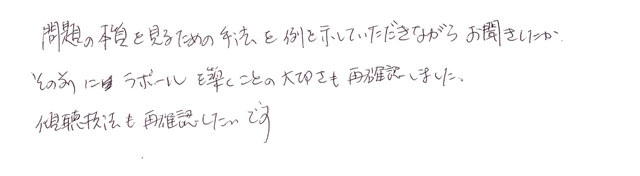 問題の本質を見るための手法を例を示していただきながらお聞きしたが、
その前にはラポールを築くことの大切さも再確認しました。
傾聴技法も再確認したいです